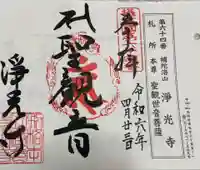 第六十四番 補陀洛山 浄光寺
札所 本尊 聖観世音菩薩
奉拝
令和六年
四月廿一日
聖観音
浄光寺